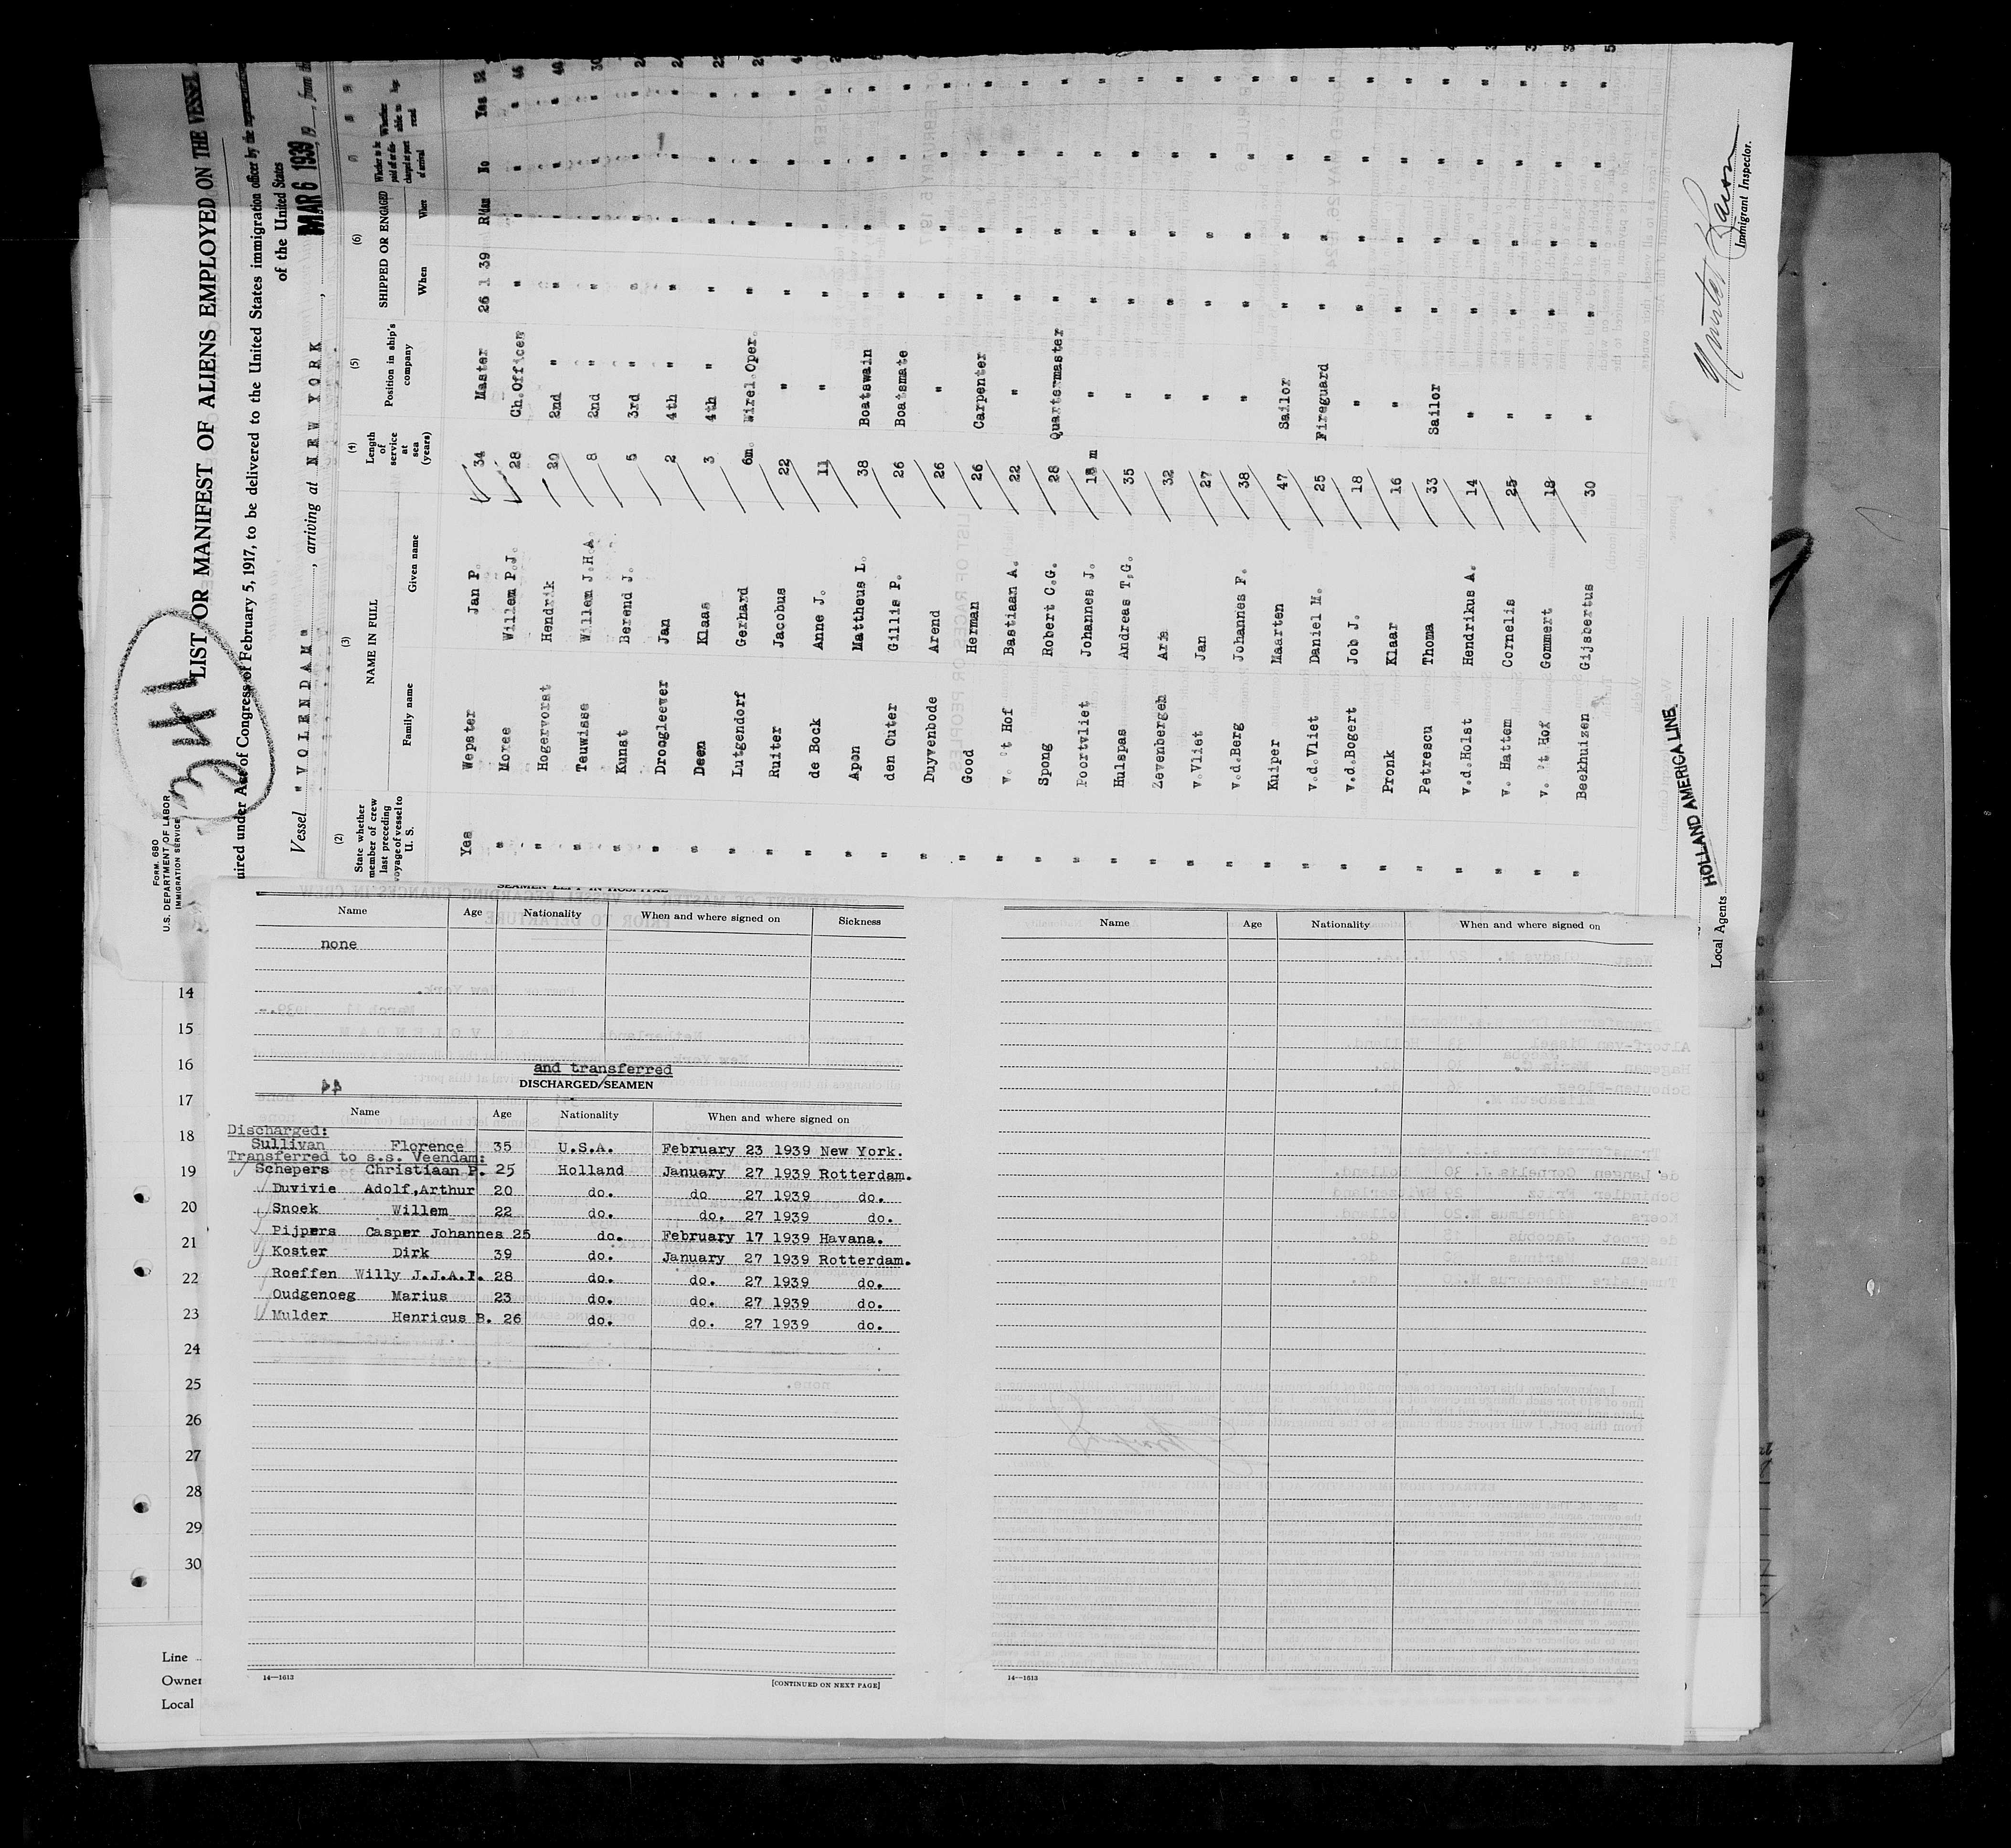 FORM 680
U. S. DEPARTMENT OF LABOR
IMMIGRATION SERVICE
341
LIST OR MANIFEST OF ALIENS EMPLOYED ON THE VESSEL
uired under Act of Congress of February 5, 1917, to be delivered to the United States immigration officer by the
of the United States
Vessel "VOLENDAM", arriving at NEW YORK, MAR 6 1939, 19 , from the
(2) (3) (4) (5) (6)
State whether member of crew last preceding voyage of vessel to U. S.
NAME IN FULL
Family name Given name
Length of service at sea (years)
Position in ship's company
SHIPPED OR ENGAGED
When Where
Whether to be paid off or discharged at port of arrival
Whether able to read
Yes Wepster Jan P. 34 Master 26 1 39 R'dam No Yes 52
" Moree Willem P.J. 28 Ch.Officer " " " "
" Hogervorst Hendrik 20 2nd " " " " "
" Teuwisse Willem J.H.A. 8 2nd " " " " "
" Kunst Berend J. 5 3rd " " " " "
" Droogleever Jan 2 4th " " " " "
" Deen Klaas 3 4th " " " " "
" Lutgendorf Gerhard 6m. Wirel.Oper. " " " "
" Ruiter Jacobus 22 " " " " "
" de Bock Anne J. 11 " " " " "
" Apon Mattheus L. 38 Boatswain " " " "
" den Outer Gillis P. 26 Boatsmate " " " "
" Duyvenbode Arend 26 " " " " "
" Good Herman 26 Carpenter " " " "
" v. 't Hof Bastiaan A. 22 " " " " "
" Spong Robert C.G. 28 Quartermaster " " " "
" Poortvliet Johannes J. 18 m " " " " "
" Hulspas Andreas T.G. 35 " " " " "
" Zevenbergen Arie 32 " " " " "
" v.Vliet Jan 27 " " " " "
" v.d.Berg Johannes F. 38 " " " " "
" Kuiper Maarten 47 Sailor " " " "
" v.d.Vliet Daniel M. 25 Fireguard " " " "
" v.d.Bogert Job J. 18 " " " " "
" Pronk Klaar 16 " " " " "
" Petrescu Thoma 33 Sailor " " " "
" v.d.Holst Hendrikus A. 14 " " " " "
" v. Hattem Cornelis 25 " " " " "
" v. 't Hof Gommert 18 " " " " "
" Beekhuizen Gijsbertus 30 " " " " "
Local Agents HOLLAND AMERICA LINE
Immigrant Inspector.
SEAMEN LEFT IN HOSPITAL
Name Age Nationality When and where signed on Sickness
none
and transferred
DISCHARGED/SEAMEN
Name Age Nationality When and where signed on
Discharged:
Sullivan Florence 35 U.S.A. February 23 1939 New York.
Transferred to s.s. Veendam:
Schepers Christiaan P. 25 Holland January 27 1939 Rotterdam.
Duvivie Adolf,Arthur 20 do. do 27 1939 do.
Snoek Willem 22 do. do. 27 1939 do.
Pijpers Casper Johannes 25 do. February 17 1939 Havana.
Koster Dirk 39 do. January 27 1939 Rotterdam.
Roeffen Willy J.J.A.P. 28 do. do. 27 1939 do.
Oudgenoeg Marius 23 do. do. 27 1939 do.
Mulder Henricus B. 26 do. do. 27 1939 do.
14—1613
[CONTINUED ON NEXT PAGE]
Name Age Nationality When and where signed on
14—1613
14
15
16
17
18
19
20
21
22
23
24
25
26
27
28
29
30
Line
Owner
Local